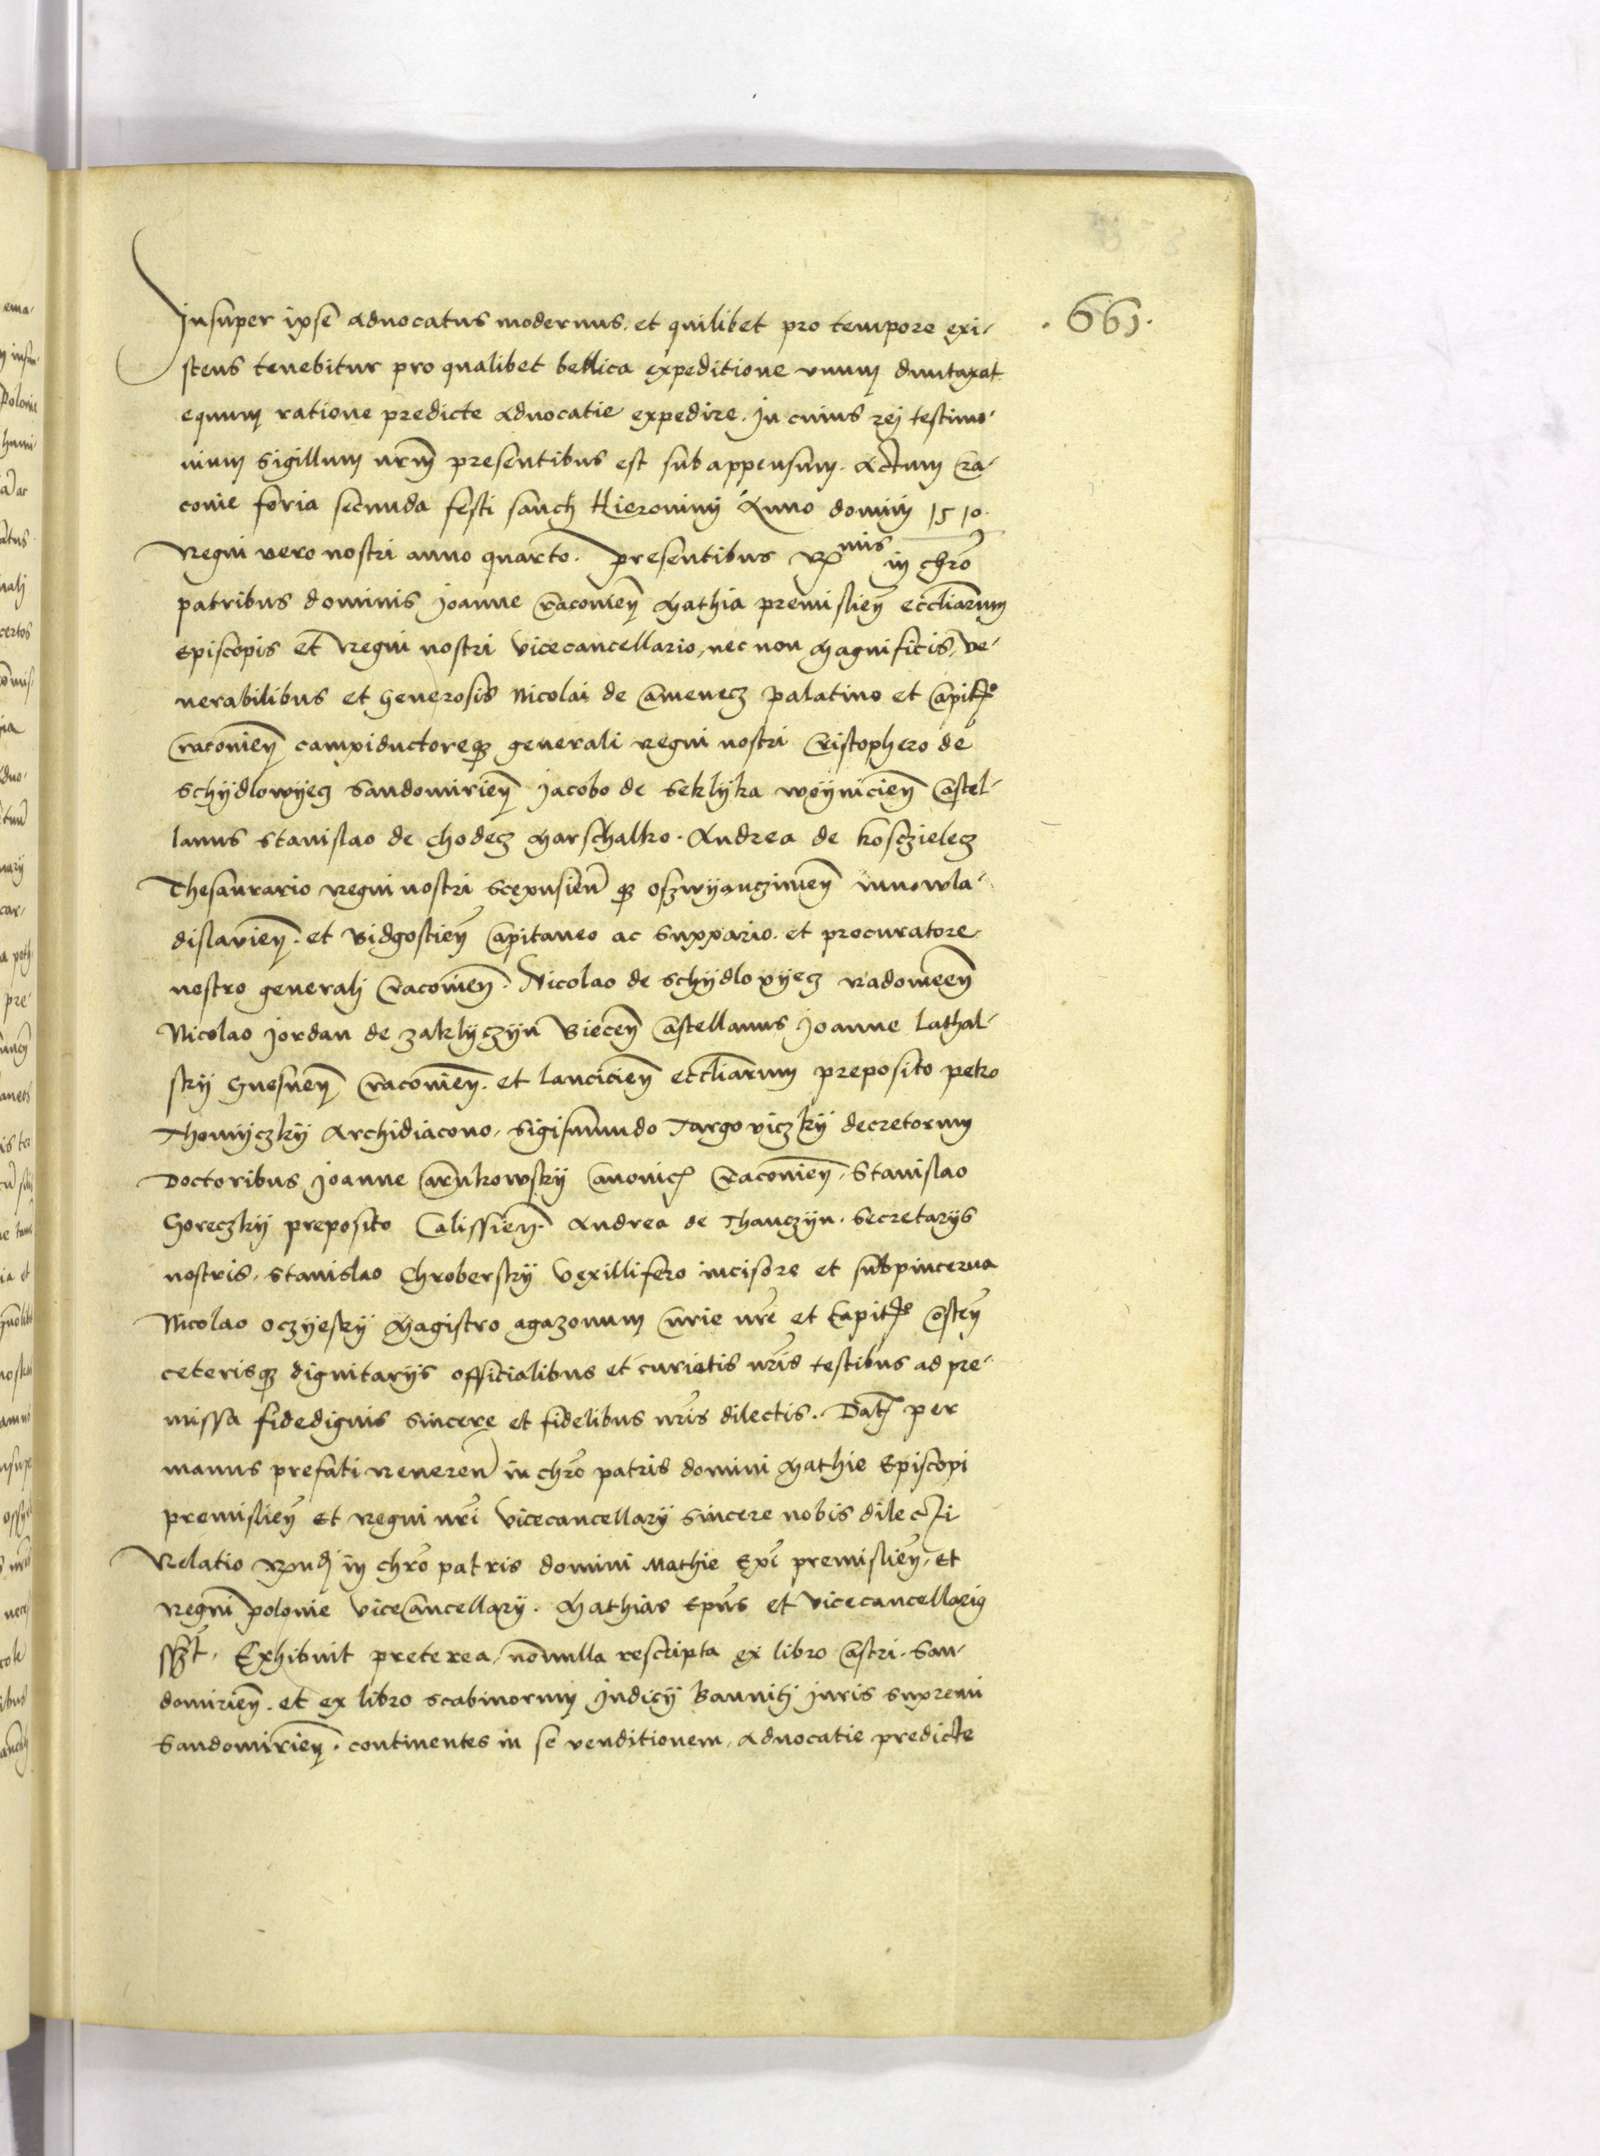 .661.
Insuper ipse advocatus modernus, et quilibet pro tempore exi-
stens tenebitur pro qualibet bellica expeditione unum duntaxat
equum ratione predicte advocatie expedire. In cuius rej testimo-
nium sigillum nr̃m presentibus est subappensum. Actum Cra-
covie feria secunda festi sancti Hieronimj Anno dominj 1510.
Regni vero nostri anno quarto. presentibus Rmis in chro
patribus dominis Joanne Cracovieñ Mathia premislieñ eccliarum
Episcopis et Regni nostri vicecancellario, nec non Magnificis, Ve-
nerabilibus et Generosis Nicolai de Camenecz palatino et Capitño
Cracovieñ campiductoreqʒ generali regni nostri Cristophero de
Schydlowyecz Sandomirieñ Jacobo de Seklyka woynicieñ Castel-
lanus Stanislao de Chodecz Marschalko. Andrea de Kosczielecz
Thesaurario regni nostri Scepusieñ qʒ Oszwyanczimeñ innowla-
dislavieñ. et Bidgostieñ Capitaneo ac Suppario. et procuratore
nostro generalj Cracovieñ. Nicolao de Schydlovyecz Radomeeñ
Nicolao Jordan de Zaklyczyn Bieceñ Castellanus Joanne Lathal-
sky Gnesneñ Cracovieñ. et Lancicieñ eccliarum preposito petro
Thomyczky Archidiacono, Sigismundo Targoviczky decretorum
Doctoribus Joanne Carnkowsky Canonic Cracovieñ, Stanislao
Goreczky preposito Calissieñ. Andrea de Thanczyn. Secretarys
nostris, Stanislao Chrobersky Vexillifero incisore et subpincerna
Nicolao Oczyesky Magistro agazonum Curie nre et Capitño Costeñ
ceterisqʒ dignitarys officialibus et curietis nris testibus ad pre-
missa fidedignis sincere et fidelibus nris dilectis. Dat per
manus prefati Reveren in chro patris domini Mathie Episcopi
premislieñ et regni nri vicecancellary sincere nobis dilecti
Relatio Rndj in chro patris domini Mathie Epi premislieñ, et
regni polonie vicecancellary. Mathias Epus et vicecancellarig
sszt. Exhibuit preterea, nonnulla rescripta ex libro Castri. San-
domirieñ. et ex libro scabinorum Judicÿ bannitj iuris supremi
Sandomirieñ. continentes in se venditionem, advocatie predicte